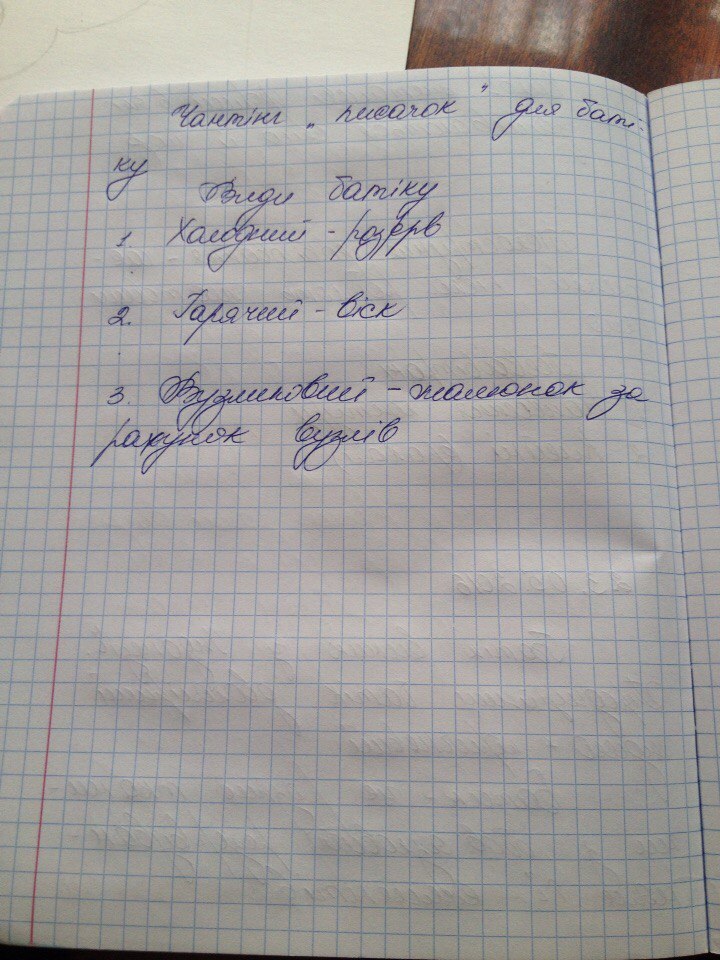 Чантінг „ писачок " для баті-
ку
Види батіку
1. Холодний - резерв
2. Гарячий - віск
3. Вузликовий - малюнок за
рахунок вузлів